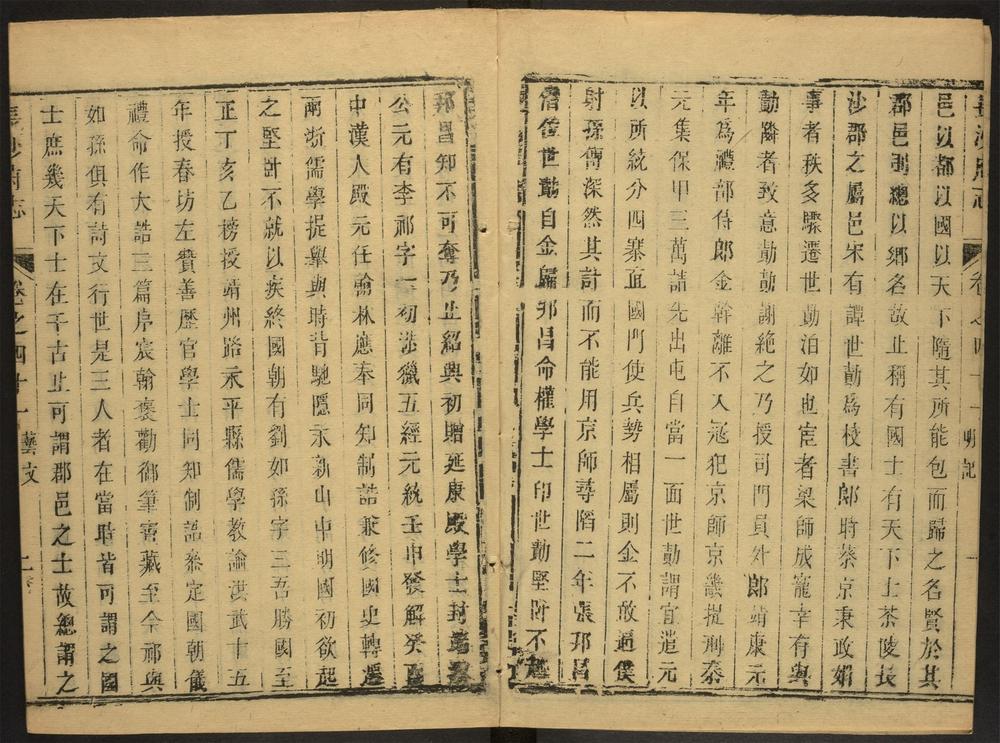 長沙府志 卷之四十一 明記
邑以都以國以天下隨其所能包而歸之名賢於其
郡邑則總以鄉名故止稱有國士有天下士茶陵長
沙郡之屬邑宋有譚世勣爲校書郎時蔡京秉政媚
事者秩多驟遷世勣泊如也宦者梁師成寵幸有與
勣隣者致意勣勣謝絶之乃授司門員外郎靖康元
年爲禮部侍郎金幹離不入冦犯京師京畿提刑秦
元集保甲三萬請先出屯自當一面世勣謂宜遣元
以所統分四寨直國門使兵勢相屬則金不敢逼僕
射孫傳深然其計而不能用京師尋陷二年張邦昌
僭僞世勣自金歸邦昌命權學士印世勣堅卧不起
邦昌知不可奪乃止紹興初贈延康殿學士封
公元有李祁字一初渉獵五經元統壬申發解癸酉
中漢人殿元任翰林應奉同知制誥兼修國史轉遷
兩浙儒學提舉與時背馳隱永新山中明國初欲起
之堅卧不就以疾終國朝有劉如孫字三吾勝國至
正丁亥乙榜授靖州路永平縣儒學教諭洪武十五
年授春坊左贊善歷官學士同知制誥叅定國朝儀
禮命作大誥三篇序宸翰褒勸御筆寳藏至今祁與
如孫俱有詩文行世是三人者在當時皆可謂之國
士庶幾天下士在千古止可謂郡邑之士故總謂之
長沙府志 卷之四十一 藝文